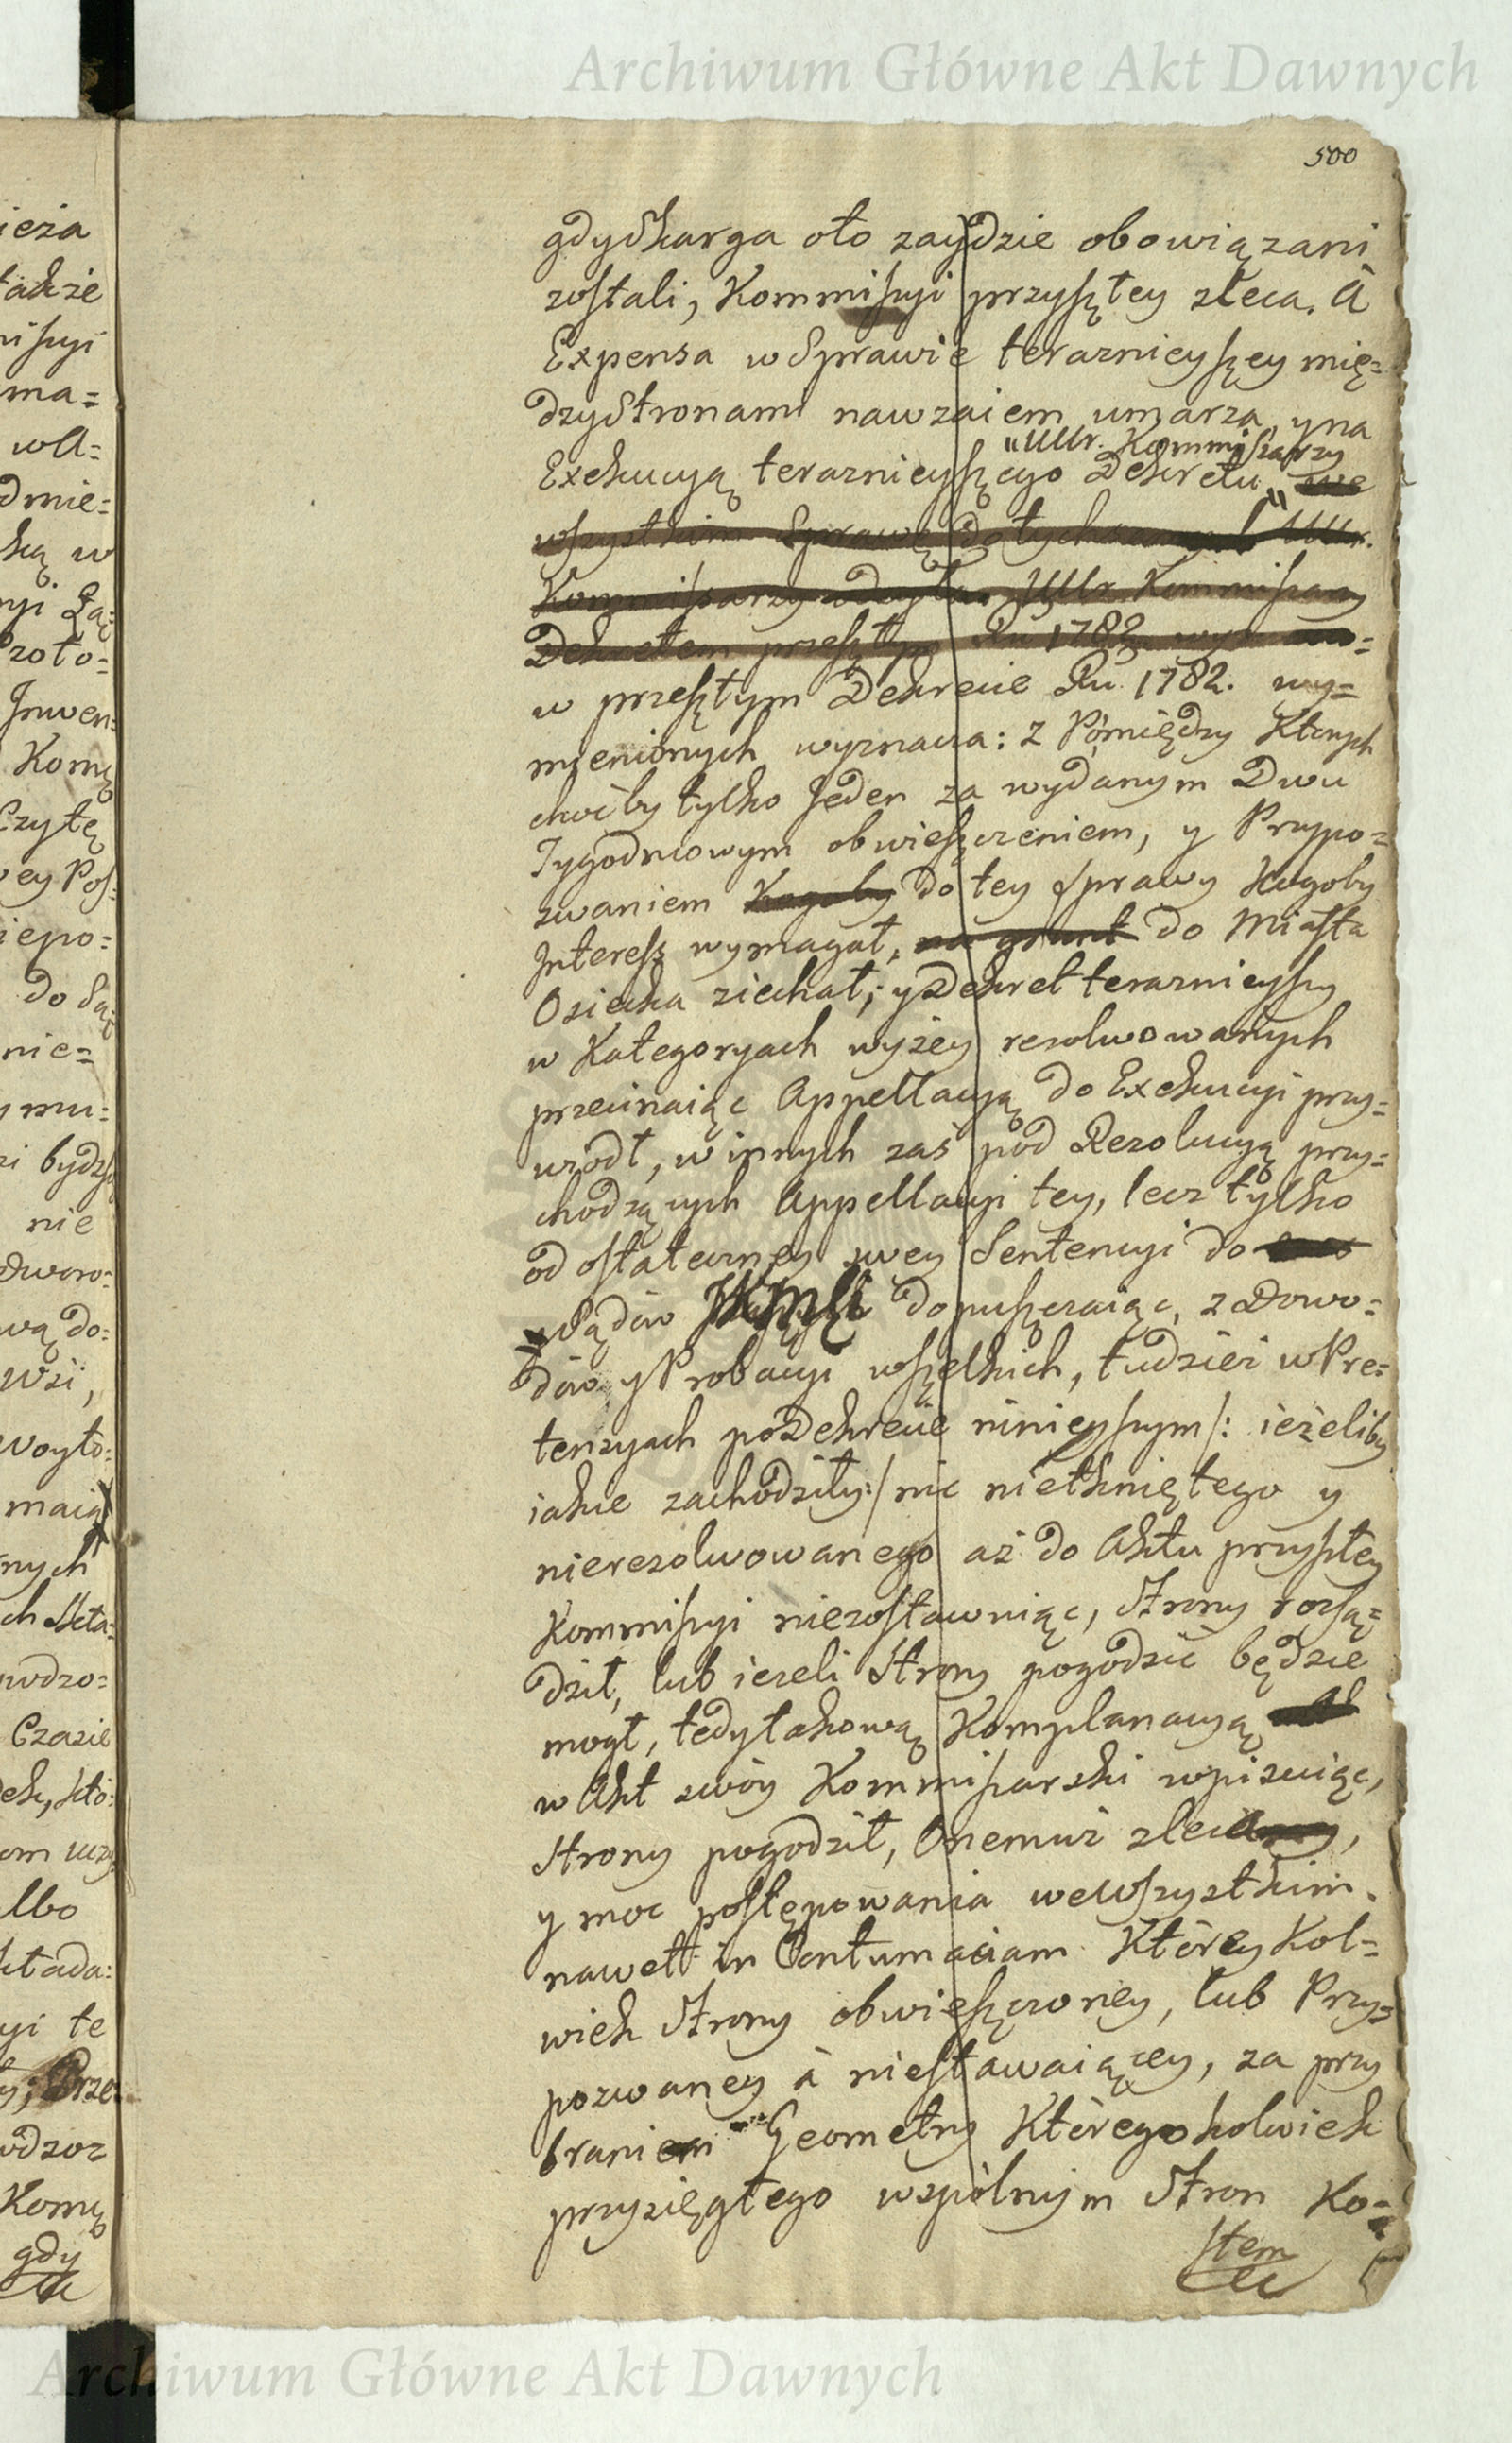 Archiwum Główne Akt Dawnych
500
gdy Skarga oto zaydzie obowiązani
zostali, Kommissyi przyszłey zleca. A
Expensa w Sprawie teraznieyszey mię=
dzy Stronami nawzaiem umarza, y na
"UUr. Kommissarzy
Exekucyą teraznieyszego Dekretu " we
wszystkim Sprawę dotychczas UUr.
Kommissarzy UUr. Kommissarzy
Dekretem przeszłym Ru 1782 wy
w przeszłym Dekrecie Ru 1782. wy=
mienionych wyznacza: z Pomiędzy Ktorych
choćby tylko Jeden za wydanym Dwu
Tygodniowym obwieszczeniem, y Przypo=
zwaniem Kogoby do tey sprawy Kogoby
Interess wymagał, na grunt do Miasta
Osiecka ziechał; y Dekret teraznieyszy
w Kategoryach wyżey rezolwowanych
przecinaiąc Appellacyą do Exekucyi przy=
wzodł, w innych zaś pod Rezolucyą przy=
chodzących Appellacyi tey, lecz tylko
od ostateczney swey Sentencyi do
Sądów JKMci dopuszczaiąc, z Dowo=
dów y Probacyi wszelkich, tudzież w Pre=
tensyach po Dekrecie ninieyszym /: ieżeliby
iakie zachodziły :/ nic nietkniętego y
nierezolwowanego aż do Aktu przyszłey
Kommissyi niezostawuiąc, Strony rozsą=
dził, lub ieżeli Strony pogodzić będzie
mogł, tedy takową Komplanacyą
w Akt swóy Kommissarski wpisuiąc,
Strony pogodził, Onemuż zleca,
y moc postępowania we Wszystkim.
nawet in Contumaciam Którey Kol=
wiek Strony obwieszczoney, lub Przy=
pozwaney à niestawaiącey, za przy
braniem Geometry Któregokolwiek
przysięgłego wspólnym Stron Ko=
sztem
ieża
także
missyi
ma=
w A=
dmie=
ką w
Proto=
Inwen=
Kom
Czytę
wey Pos=
iepo=
do Są
nie=
mu=
bydz
nie
dworo=
wą do=
Wsi,
Woyto=
maią
nych
ch Stta=
wodzo=
Czasie
albo
kłada=
yi te
Prze=
wdzoz
Kom
gdy
Archiwum Główne Akt Dawnych